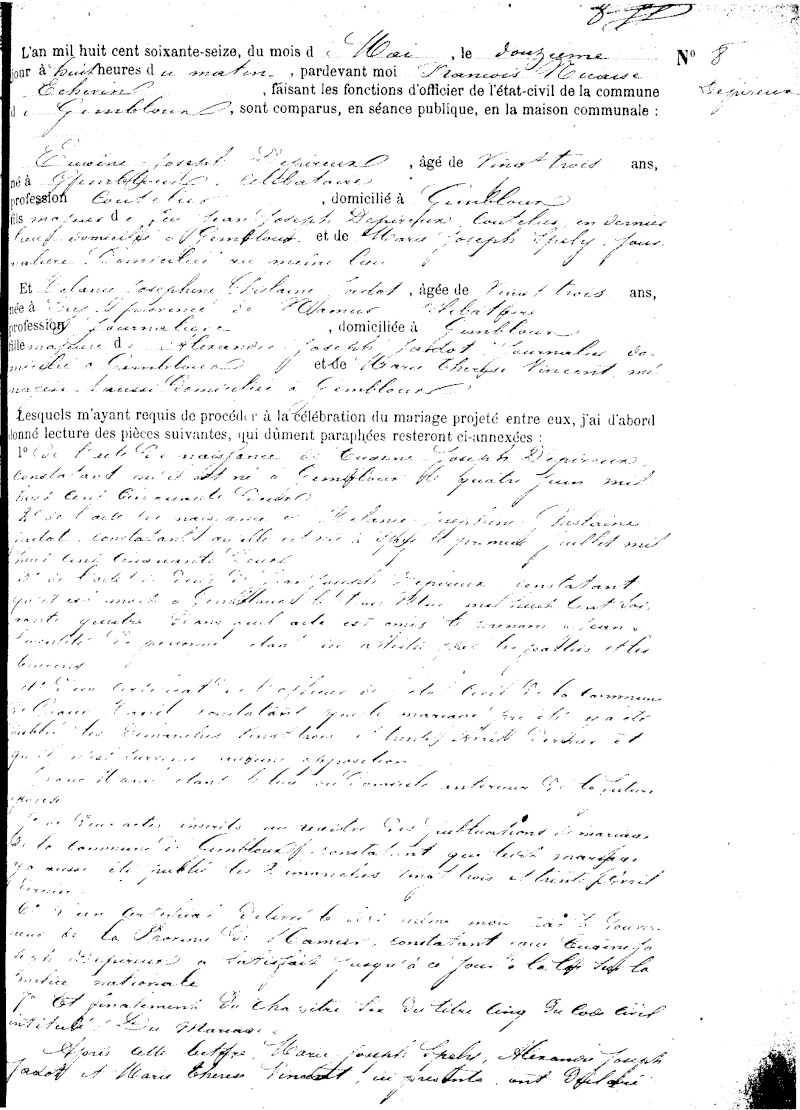 8
L'an mil huit cent soixante-seize, du mois de Mai, le douzieme
jour à huit heures du matin, pardevant moi François
Echevin, faisant les fonctions d'officier de l'état-civil de la commune
de Gembloux, sont comparus, en séance publique, en la maison communale :
Nº 8
Depireux
Eugène Joseph Depireux, âgé de Vingt trois ans,
né à Gembloux, célibataire
profession Coutelier, domicilié à Gembloux
fils majeur de feu Jean Joseph Depireux Coutelier, en dernier
lieu domicilié à Gembloux et de Marie Joseph Spely, jour-
nalière domiciliée au même lieu
Et Mélanie Josephine Ghislaine Jadot, âgée de Vingt trois ans,
née à province de Namur
profession Journalière, domiciliée à Gembloux
fille majeure de Alexandre Joseph Jadot, Journalier do-
micilié à Gembloux et de Marie Therese Vincent mé-
nagère aussi domiciliée à Gembloux
Lesquels m'ayant requis de procéder à la célébration du mariage projeté entre eux, j'ai d'abord
donné lecture des pièces suivantes, qui dûment paraphées resteront ci-annexées :
1º de l'acte de naissance de Eugene Joseph Depireux,
constatant qu'il est né à Gembloux le quatre Juin mil
huit cent cinquante deux
2º de l'acte de naissance de Mélanie Josephine Ghislaine
Jadot, constatant qu'elle est née à le premier juillet mil
huit cent cinquante deux
3º de l'acte de décès de Jean Joseph Depireux constatant
qu'il est mort à Gembloux le trois mil huit cent soi-
xante quatre dans quel acte est omis le prenom « Jean »
l'identité de personne étant attestée par les parties et les
temoins
4º d'un certificat de l'officier de l'état civil de la commune
de constatant que le mariage projeté y a été
publié les dimanches vingt trois et trente Avril dernier et
qu'il n'est survenu aucune opposition
étant le lieu du domicile antérieur de la future
epouse
5º de deux actes inscrits au registre des publications de mariage
de la commune de Gembloux, constatant que ledit mariage
y a aussi été publié les dimanches vingt trois et trente Avril
dernier.
6º d'un certificat délivré le même mois par le Gouver-
neur de la Province de Namur, constatant que Eugène Jo-
seph Depireux a satisfait jusqu'à ce jour à la loi sur la
milice nationale
7º Et finalement du chapitre six du titre cinq du Code civil
intitulé Du Mariage.
Après cette lecture, Marie Joseph Spely, Alexandre Joseph
Jadot et Marie Therese Vincent, ici présents, ont déclaré